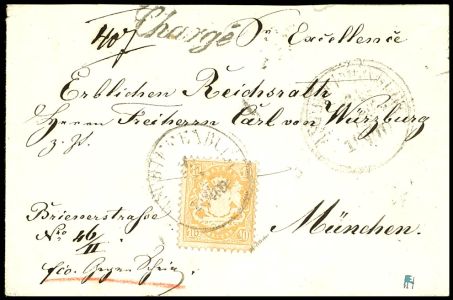 407 Chargé Sr Excellence
Erblichen Reichsrath
Herrn Freiherrn Carl von Würzburg
z. Zt.
Briennerstrasse
No 46/II
München.
fco. Gegen Schein